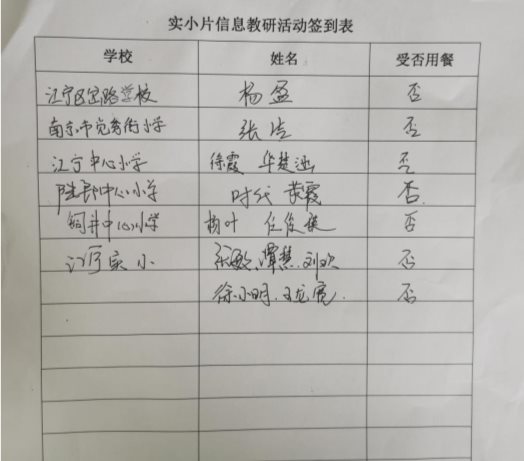 实小片信息教研活动签到表
学校 姓名 受否用餐
江宁区 路学校 杨盈 否
南京市 小学 张 否
江宁中心小学 徐霞 华楚涵 否
陆郎中心小学 时代 黄霞 否
铜井中心小学 杨叶 任俊 否
江宁实小 张敏、谭慧、刘欢 否
徐小明、王龙 否